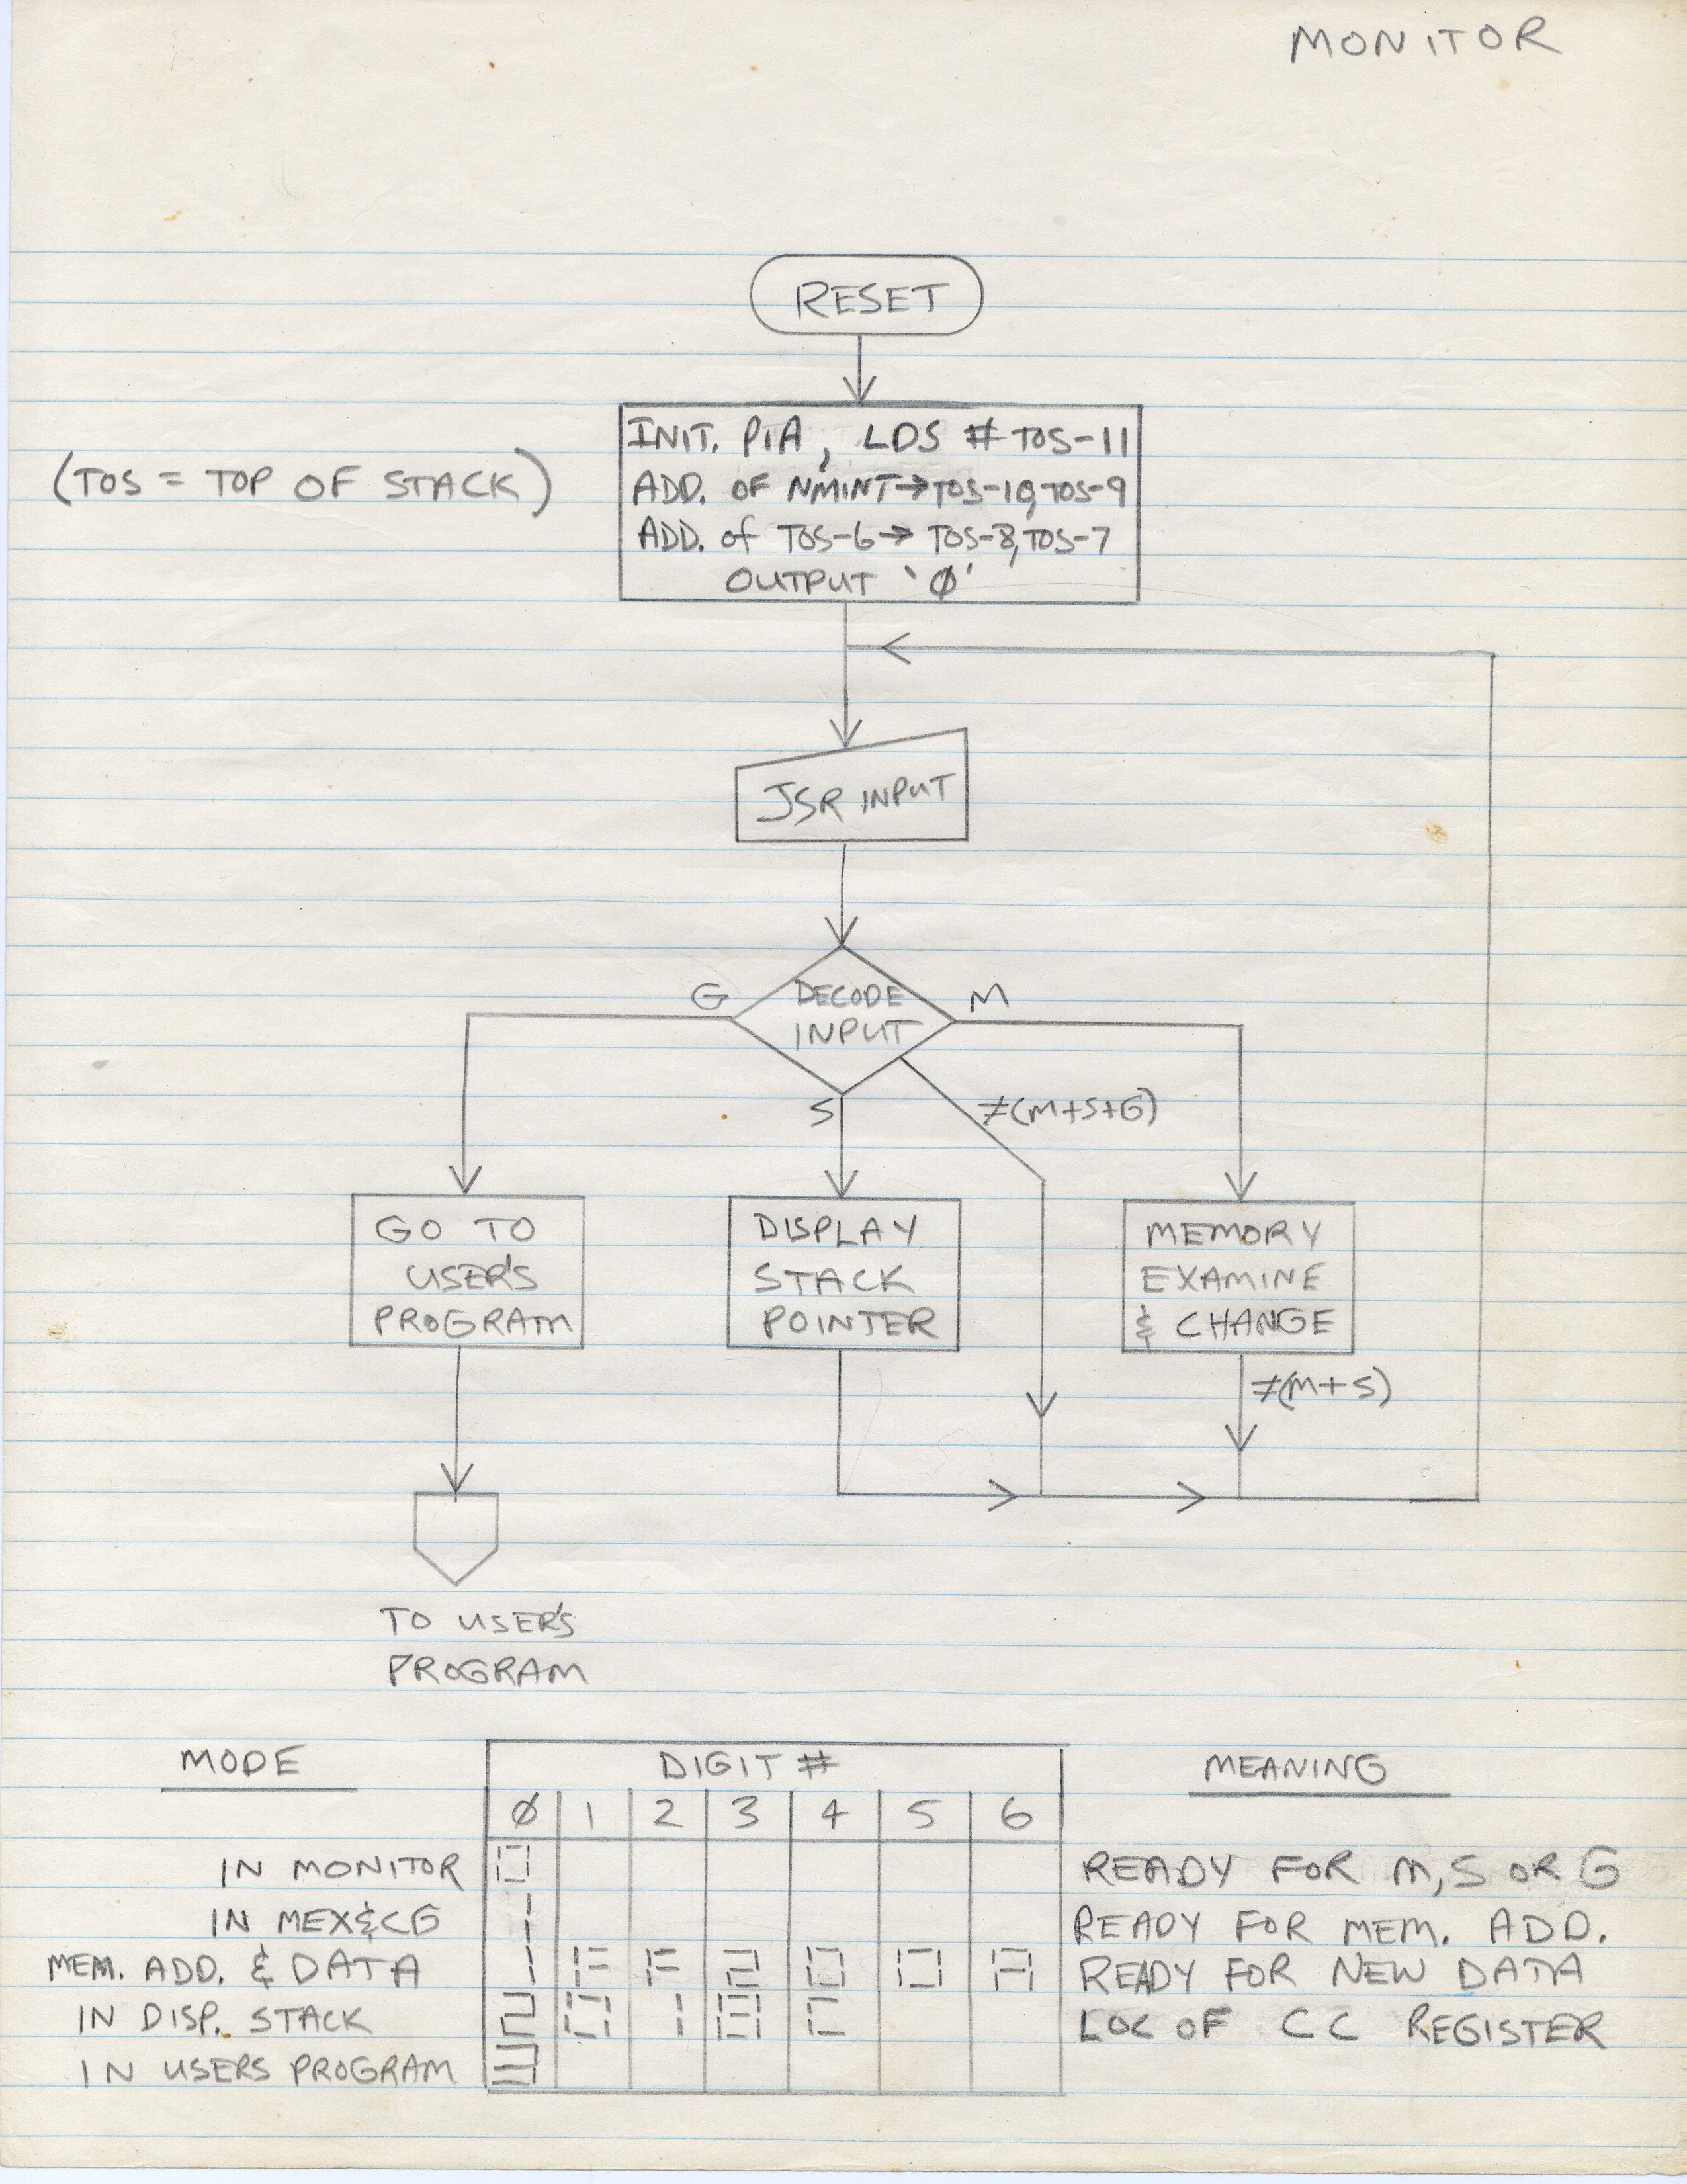 MONITOR
RESET
INIT. PIA, LDS # TOS-11
(TOS = TOP OF STACK)
ADD. OF NMINT→TOS-10,TOS-9
ADD. of TOS-6→ TOS-8,TOS-7
OUTPUT 'Ø'
JSR INPUT
G
DECODE
INPUT
M
S
≠(M+S+G)
GO TO
USER'S
PROGRAM
DISPLAY
STACK
POINTER
MEMORY
EXAMINE
& CHANGE
≠(M+S)
TO USER'S
PROGRAM
MODE DIGIT # MEANING
Ø 1 2 3 4 5 6
IN MONITOR 0 READY FOR M, S OR G
IN MEX&CG 1 READY FOR MEM. ADD.
MEM. ADD. & DATA 1 F F 2 0 0 A READY FOR NEW DATA
IN DISP. STACK 2 0 1 8 LOC OF CC REGISTER
IN USERS PROGRAM